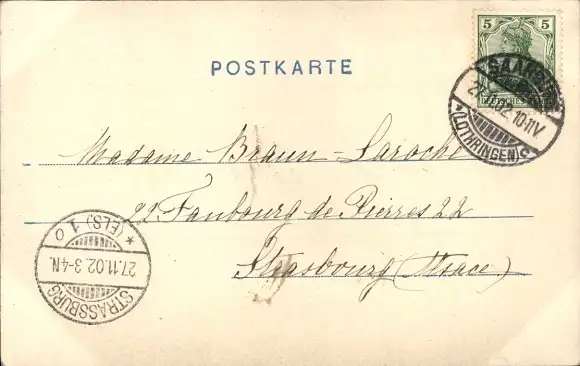 POSTKARTE
5 5
DEUTSCHES
27.11.02.10-11V
*(LOTHRINGEN)
Madame Braun-Laroche
22 Faubourg de Pierres 22
Strasbourg (Alsace)
*(ELS.) 1 o
27.11.02.3-4N.
STRASSBURG